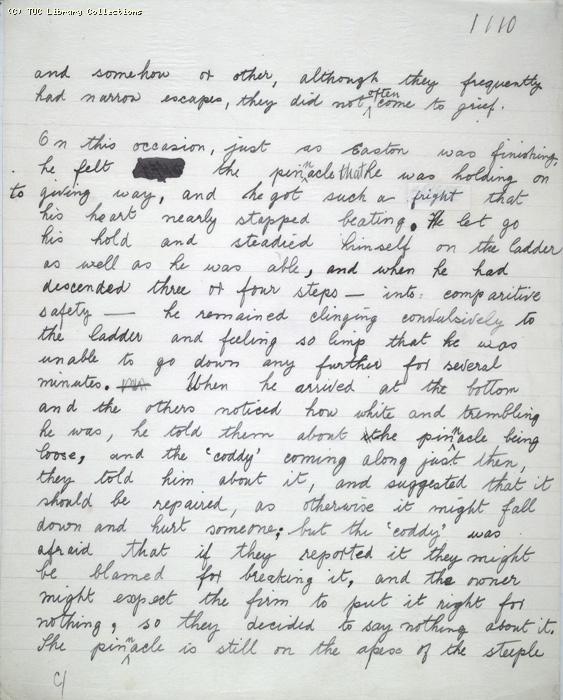 (C) TUC Library Collections
1110
and somehow or other, although they frequently
had narrow escapes, they did not often come to grief.
On this occasion, just as Easton was finishing,
he felt the pinnacle that he was holding on
to giving way, and he got such a fright that
his heart nearly stopped beating. He let go
his hold and steadied himself on the ladder
as well as he was able, and when he had
descended three or four steps — into comparitive
safety — he remained clinging convulsively to
the ladder and feeling so limp that he was
unable to go down any further for several
minutes. When he arrived at the bottom
and the others noticed how white and trembling
he was, he told them about the pinnacle being
loose, and the 'coddy' coming along just then,
they told him about it, and suggested that it
should be repaired, as otherwise it might fall
down and hurt someone; but the 'coddy' was
afraid that if they reported it they might
be blamed for breaking it, and the owner
might expect the firm to put it right for
nothing, so they decided to say nothing about it.
The pinnacle is still on the apex of the steeple